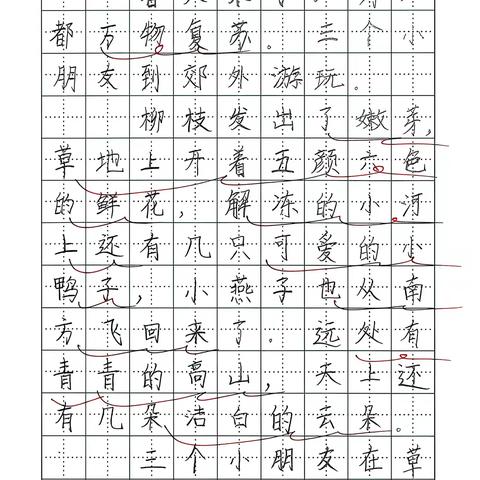 都万物复苏。三个小
朋友到郊外游玩。
柳枝发出了嫩芽，
草地上开着五颜六色
的鲜花，解冻的小河
上还有几只可爱的小
鸭子，小燕子也从南
方飞回来了。远处有
青青的高山，天上还
有几朵洁白的云朵。
三个小朋友在草